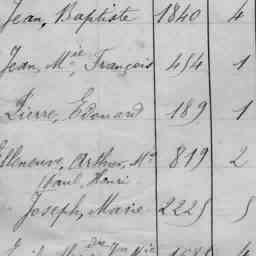 Jean, Baptiste 1840 4
Jean, Mie, François 454 1
Pierre, Edouard 189 1
Villeneuve, Arthur, Mie 819 2
Paul, Henri
Joseph, Marie 2225 5